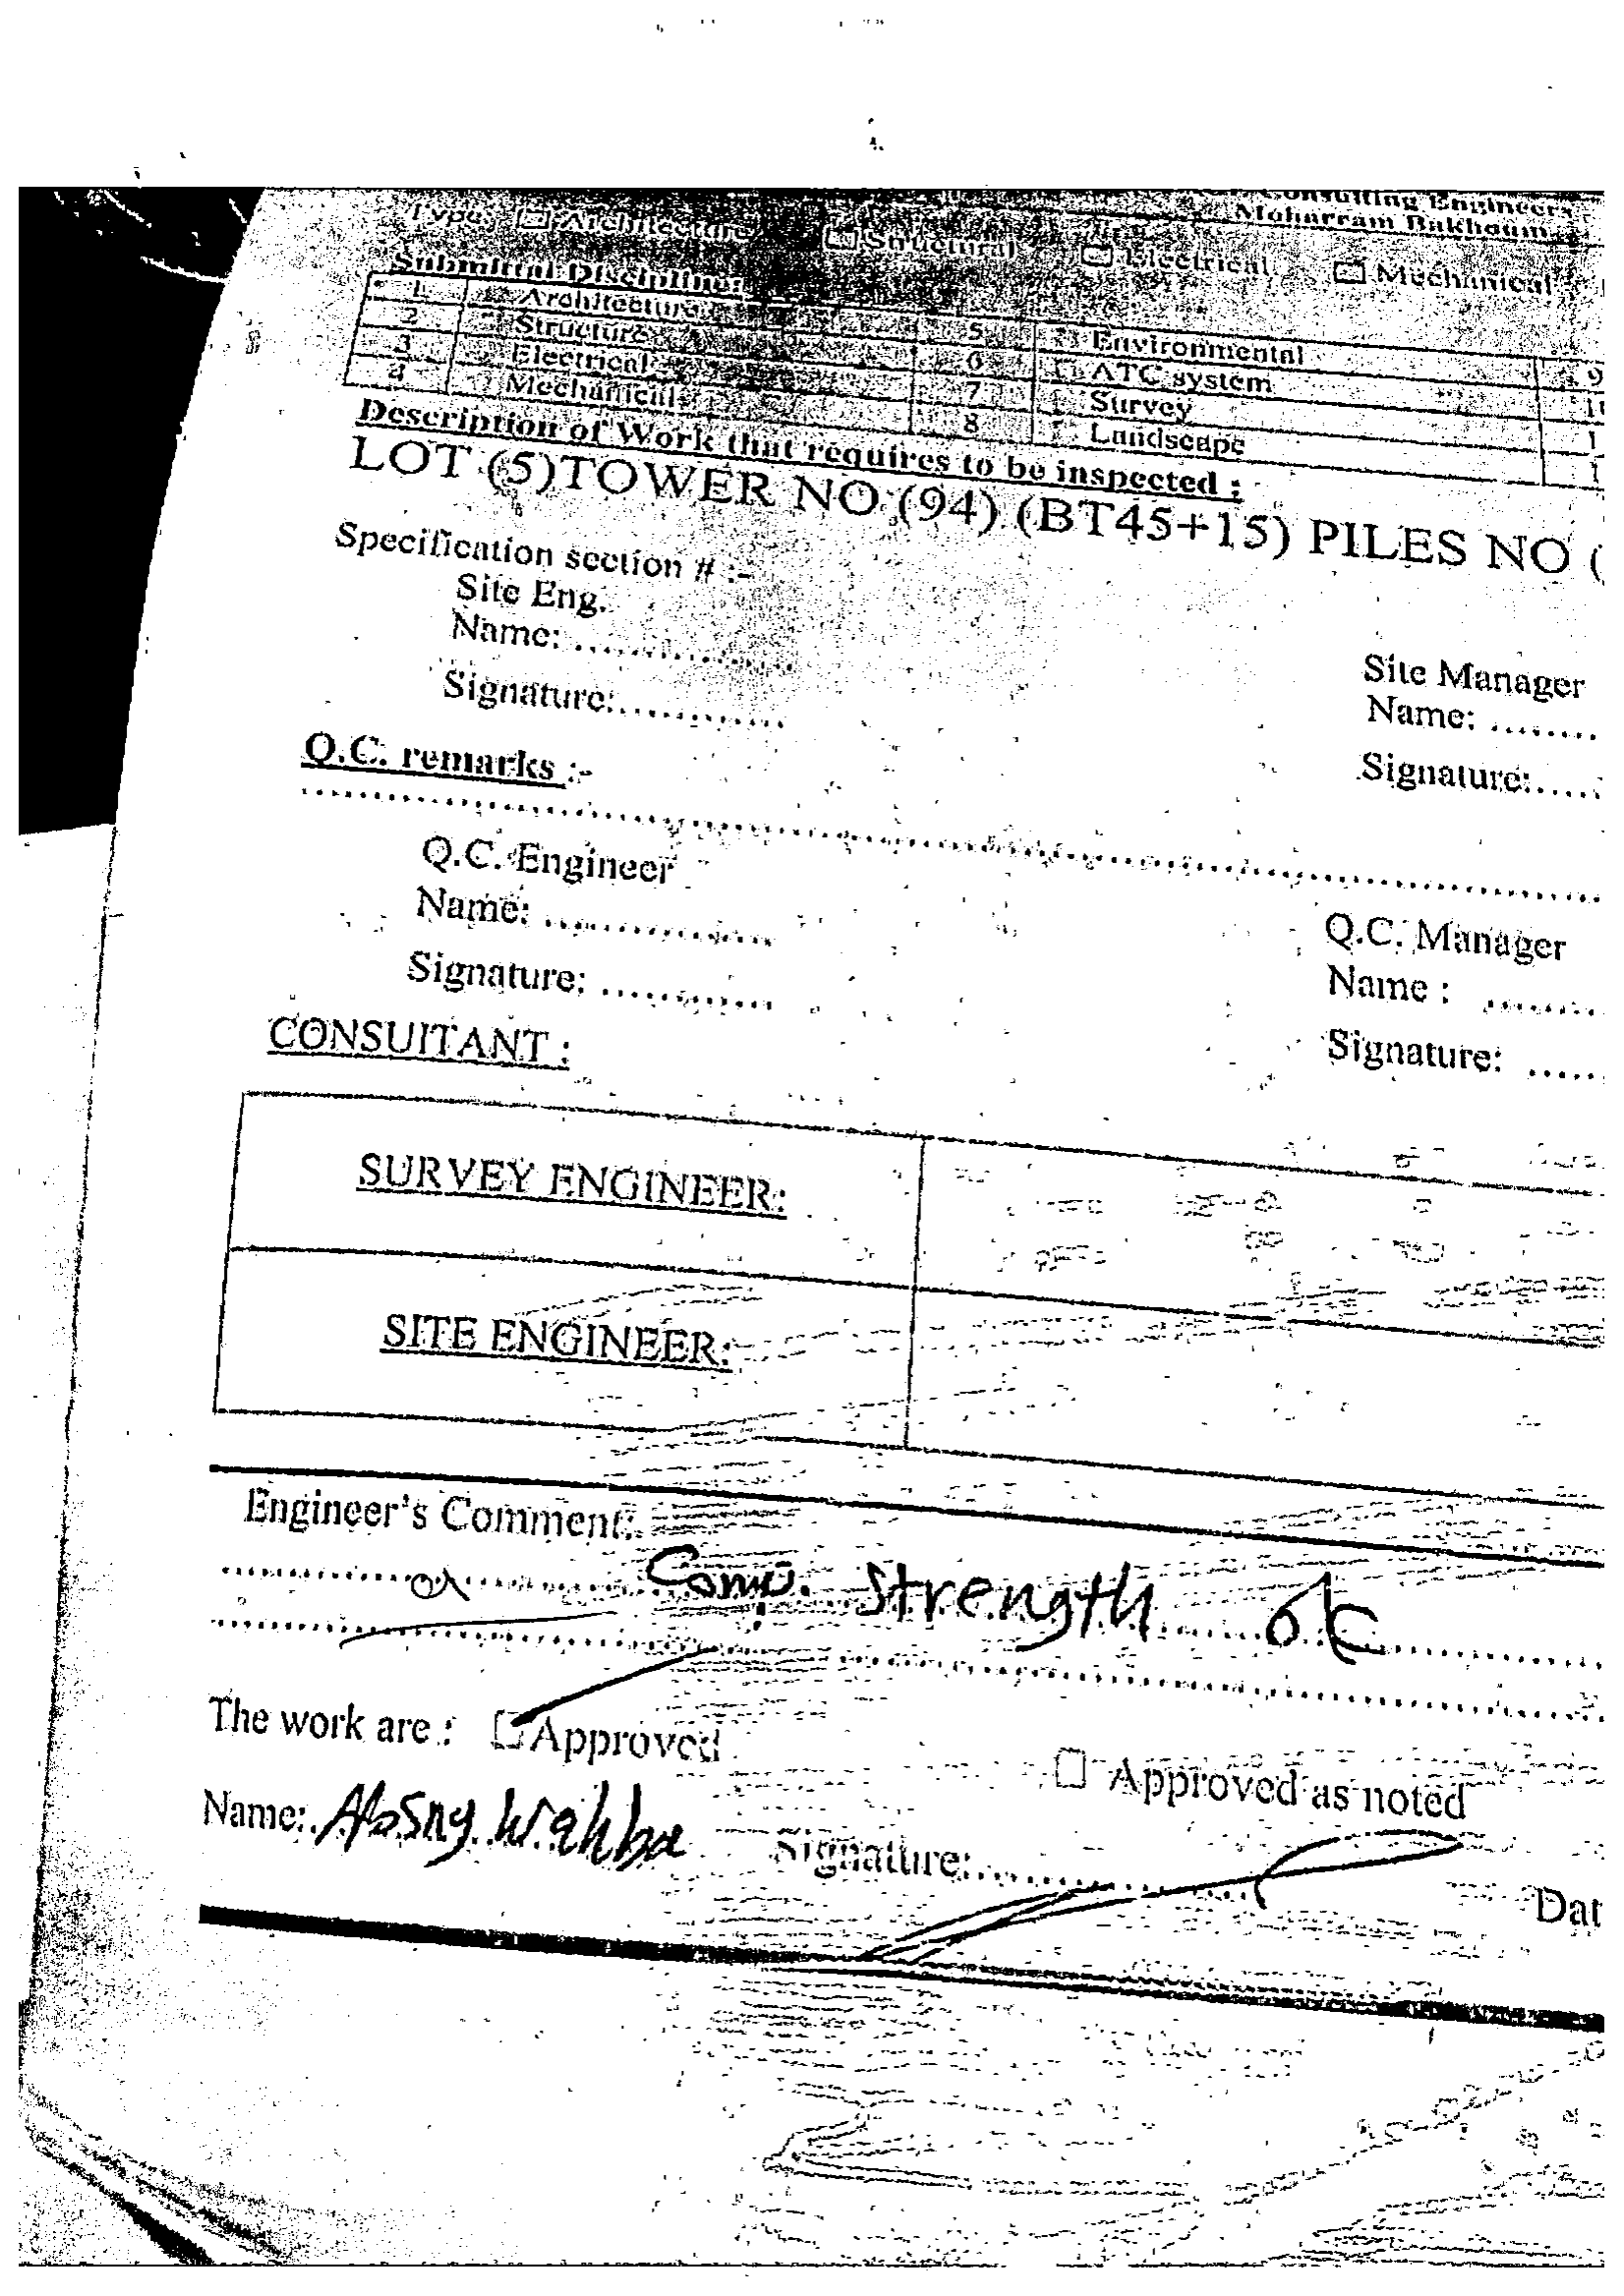 Consulting Engineers
Moharram Bakhoum
Type: Architecture Structural Electrical Mechanical
Submittal Discipline:
1 Architecture 5 Environmental 9
2 Structure 6 ATC system
3 Electrical 7 Survey
4 Mechanical 8 Landscape
Description of Work that requires to be inspected :
LOT (5)TOWER NO (94) (BT45+15) PILES NO (
Specification section # :-
Site Eng.
Name: ..................
Signature:..............
Site Manager
Name: ........
Signature:.....
Q.C. remarks :-
Q.C. Engineer
Name: ...................
Signature: ..............
Q.C. Manager
Name : ........
Signature: .....
CONSUITANT :
SURVEY ENGINEER:
SITE ENGINEER:
Engineer's Comment:
Comp. Strength ok
The work are : Approved Approved as noted
Name: Wahba Signature: Dat